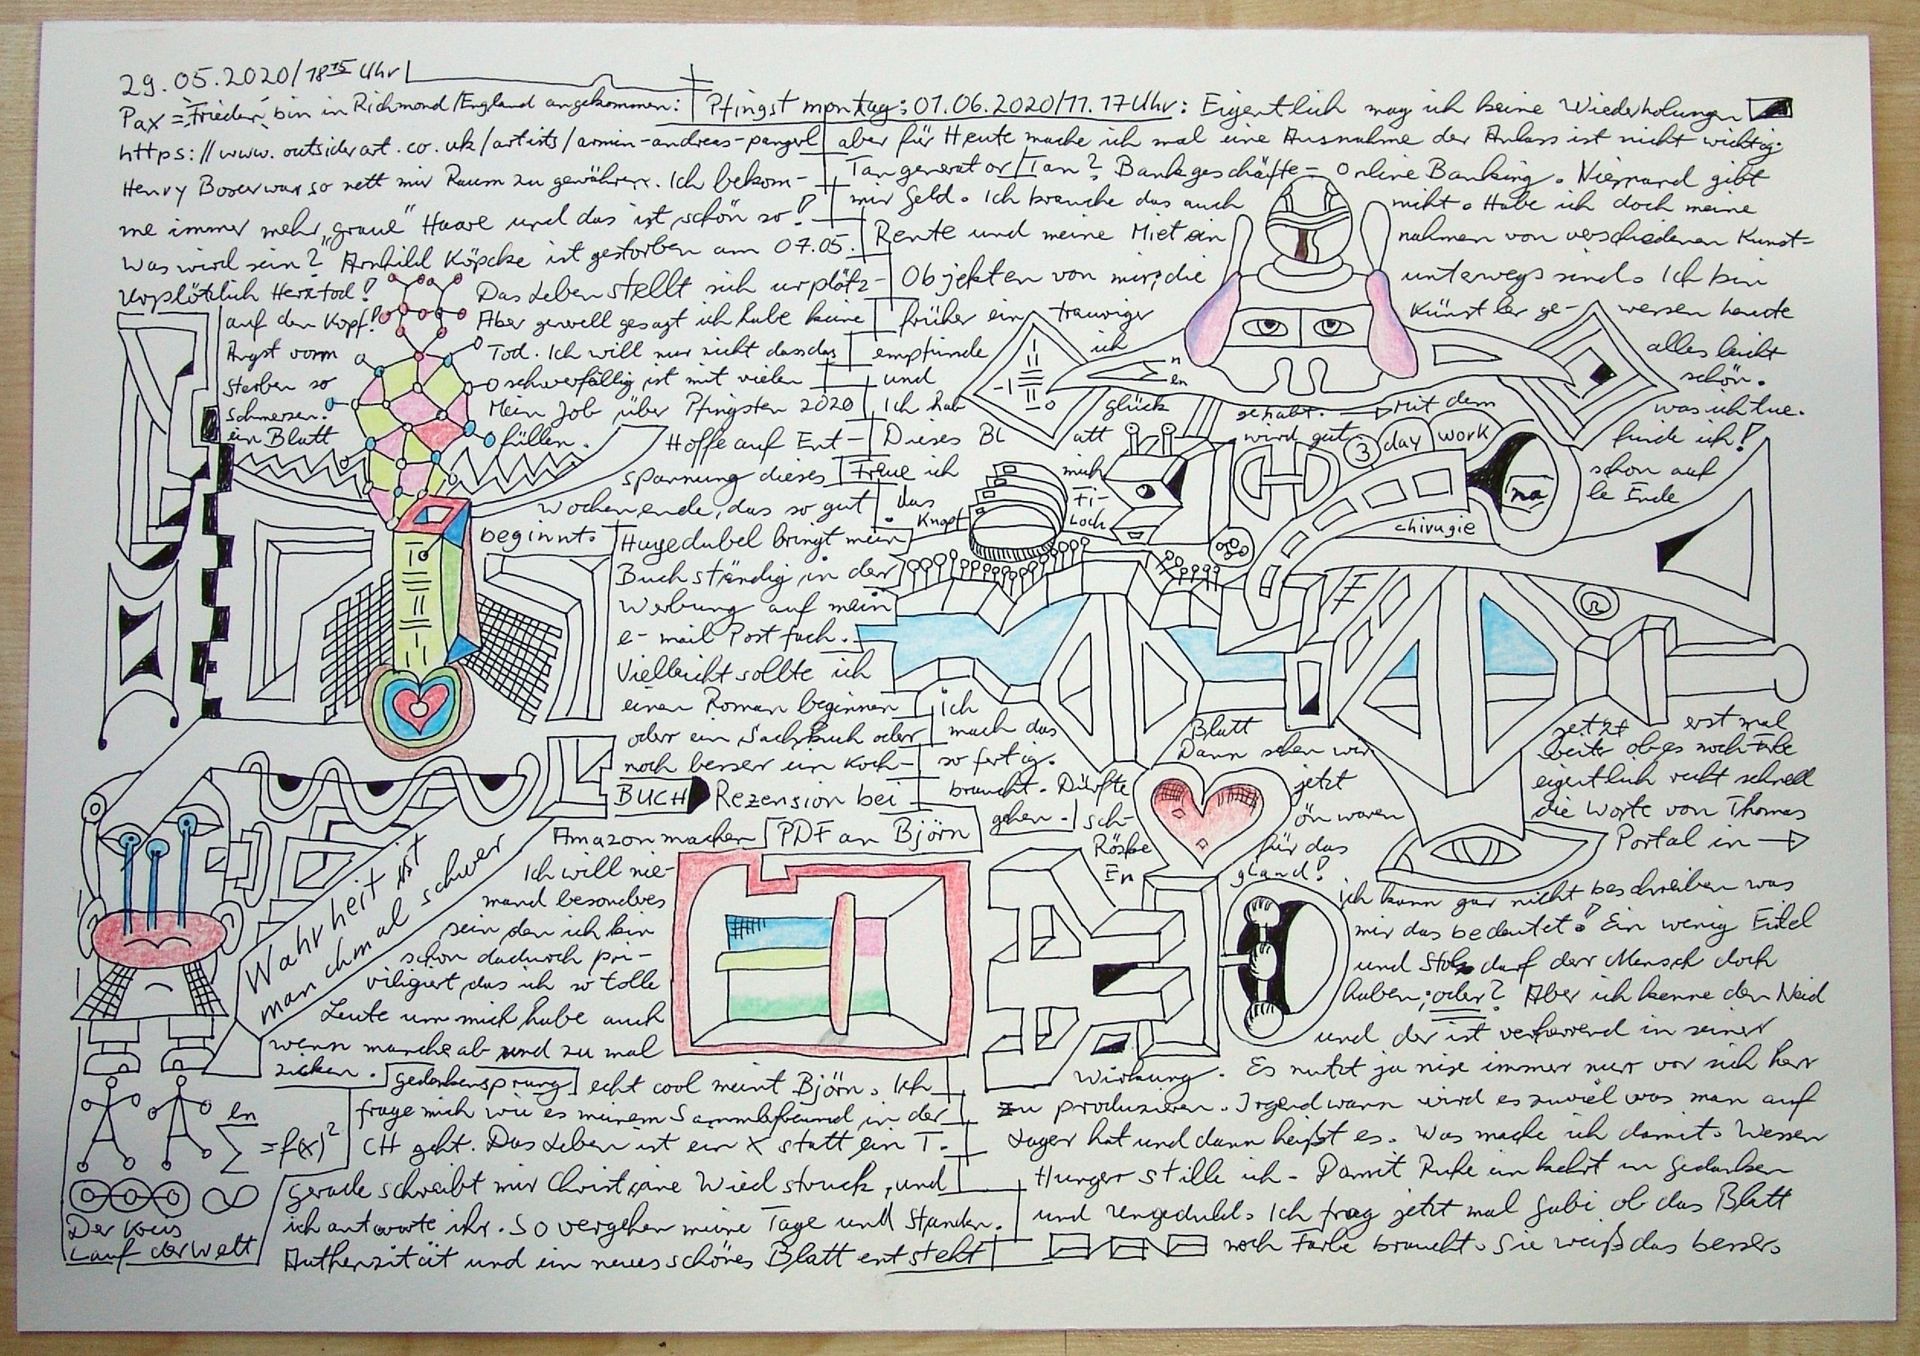 29.05.2020/18 15 Uhr
Pax = "Frieden" bin in Richmond/England angekommen:
https://www.outsiderart.co.uk/artists/armin-andreas-pangerl
Henry Boxer war so nett mir Raum zu gewähren. Ich bekom-
me immer mehr "graue" Haare und das ist schön so!
Was wird sein? Arnhild Köpcke ist gestorben am 07.05.
Urplötzlich Herztod! Das Leben stellt sich urplötz-
auf den Kopf! Aber generell gesagt ich habe keine
Angst vorm Tod. Ich will nur nicht dass das
Sterben so schwerfällig ist mit vielen
Schmerzen. Mein Job über Pfingsten 2020
ein Blatt füllen. Hoffe auf Ent-
spannung dieses
Wochenende, das so gut
beginnt. Hugedubel bringt mein
Buch ständig in der
Werbung auf mein
e-mail Postfach.
Vielleicht sollte ich
einen Roman beginnen
oder ein Sachbuch oder
noch besser ein Koch-
BUCH Rezension bei
Amazon machen PDF an Björn
Ich will nie-
mand besondres
sein den ich bin
schon dadurch pri-
viligiert, das ich so tolle
Leute um mich habe auch
wenn manche ab und zu mal
zicken. Gedankensprung echt cool meint Björn. Ich
frage mich wie es meinem Sammlerfreund in der
CH geht. Das Leben ist ein X statt ein T.
Gerade schreibt mir Christiane Wiedstruck, und
ich antworte ihr. So vergehen meine Tage und Stunden.
Authenzität und ein neues schönes Blatt entsteht
Wahrheit ist
manchmal schwer
en
∑ = f(x)²
Der Kreis
Lauf der Welt
Pfingstmontag: 01.06.2020/11.17 Uhr: Eigentlich mag ich keine Wiederholungen
aber für Heute mache ich mal eine Ausnahme der Anlass ist nicht wichtig.
Tangenerator/Tan? Bankgeschäfte = Online Banking. Niemand gibt
mir Geld. Ich brauche das auch nicht. Habe ich doch meine
Rente und meine Mietein nahmen von verschiedenen Kunst-
Objekten von mir, die unterwegs sind. Ich bin
früher ein trauriger Künstler ge- wesen heute
empfinde ich alles leicht
und en schön.
Ich hab glück gehabt. Mit dem was ich tue.
Dieses Bl att wird gut 3 day work finde ich!
Freue ich mich schon auf
das Ti- na le Ende
Knopf Loch chirugie
ich Blatt jetzt erst mal
mach das Dann sehen wir weiter ob es noch Farbe
so fertig. jetzt eigentlich recht schnell
braucht. Dürfte ön waren die Worte von Thomas
gehen. sch- für das Portal in
Röße
En gland! ich kann gar nicht beschreiben was
mir das bedeutet! Ein wenig Eitel
und Stolz darf der Mensch doch
haben, oder? Aber ich kenne den Neid
und der ist verharrend in seiner
Wirkung. Es nutzt ja nix immer nur vor sich her
zu produzieren. Irgendwann wird es zuviel was man auf
Lager hat und dann heißt es. Was mache ich damit. Wessen
Hunger stille ich. Damit Ruhe einkehrt in Gedanken
und Ungeduld. Ich frag jetzt mal Gabi ob das Blatt
noch Farbe braucht. Sie weiß das besser.